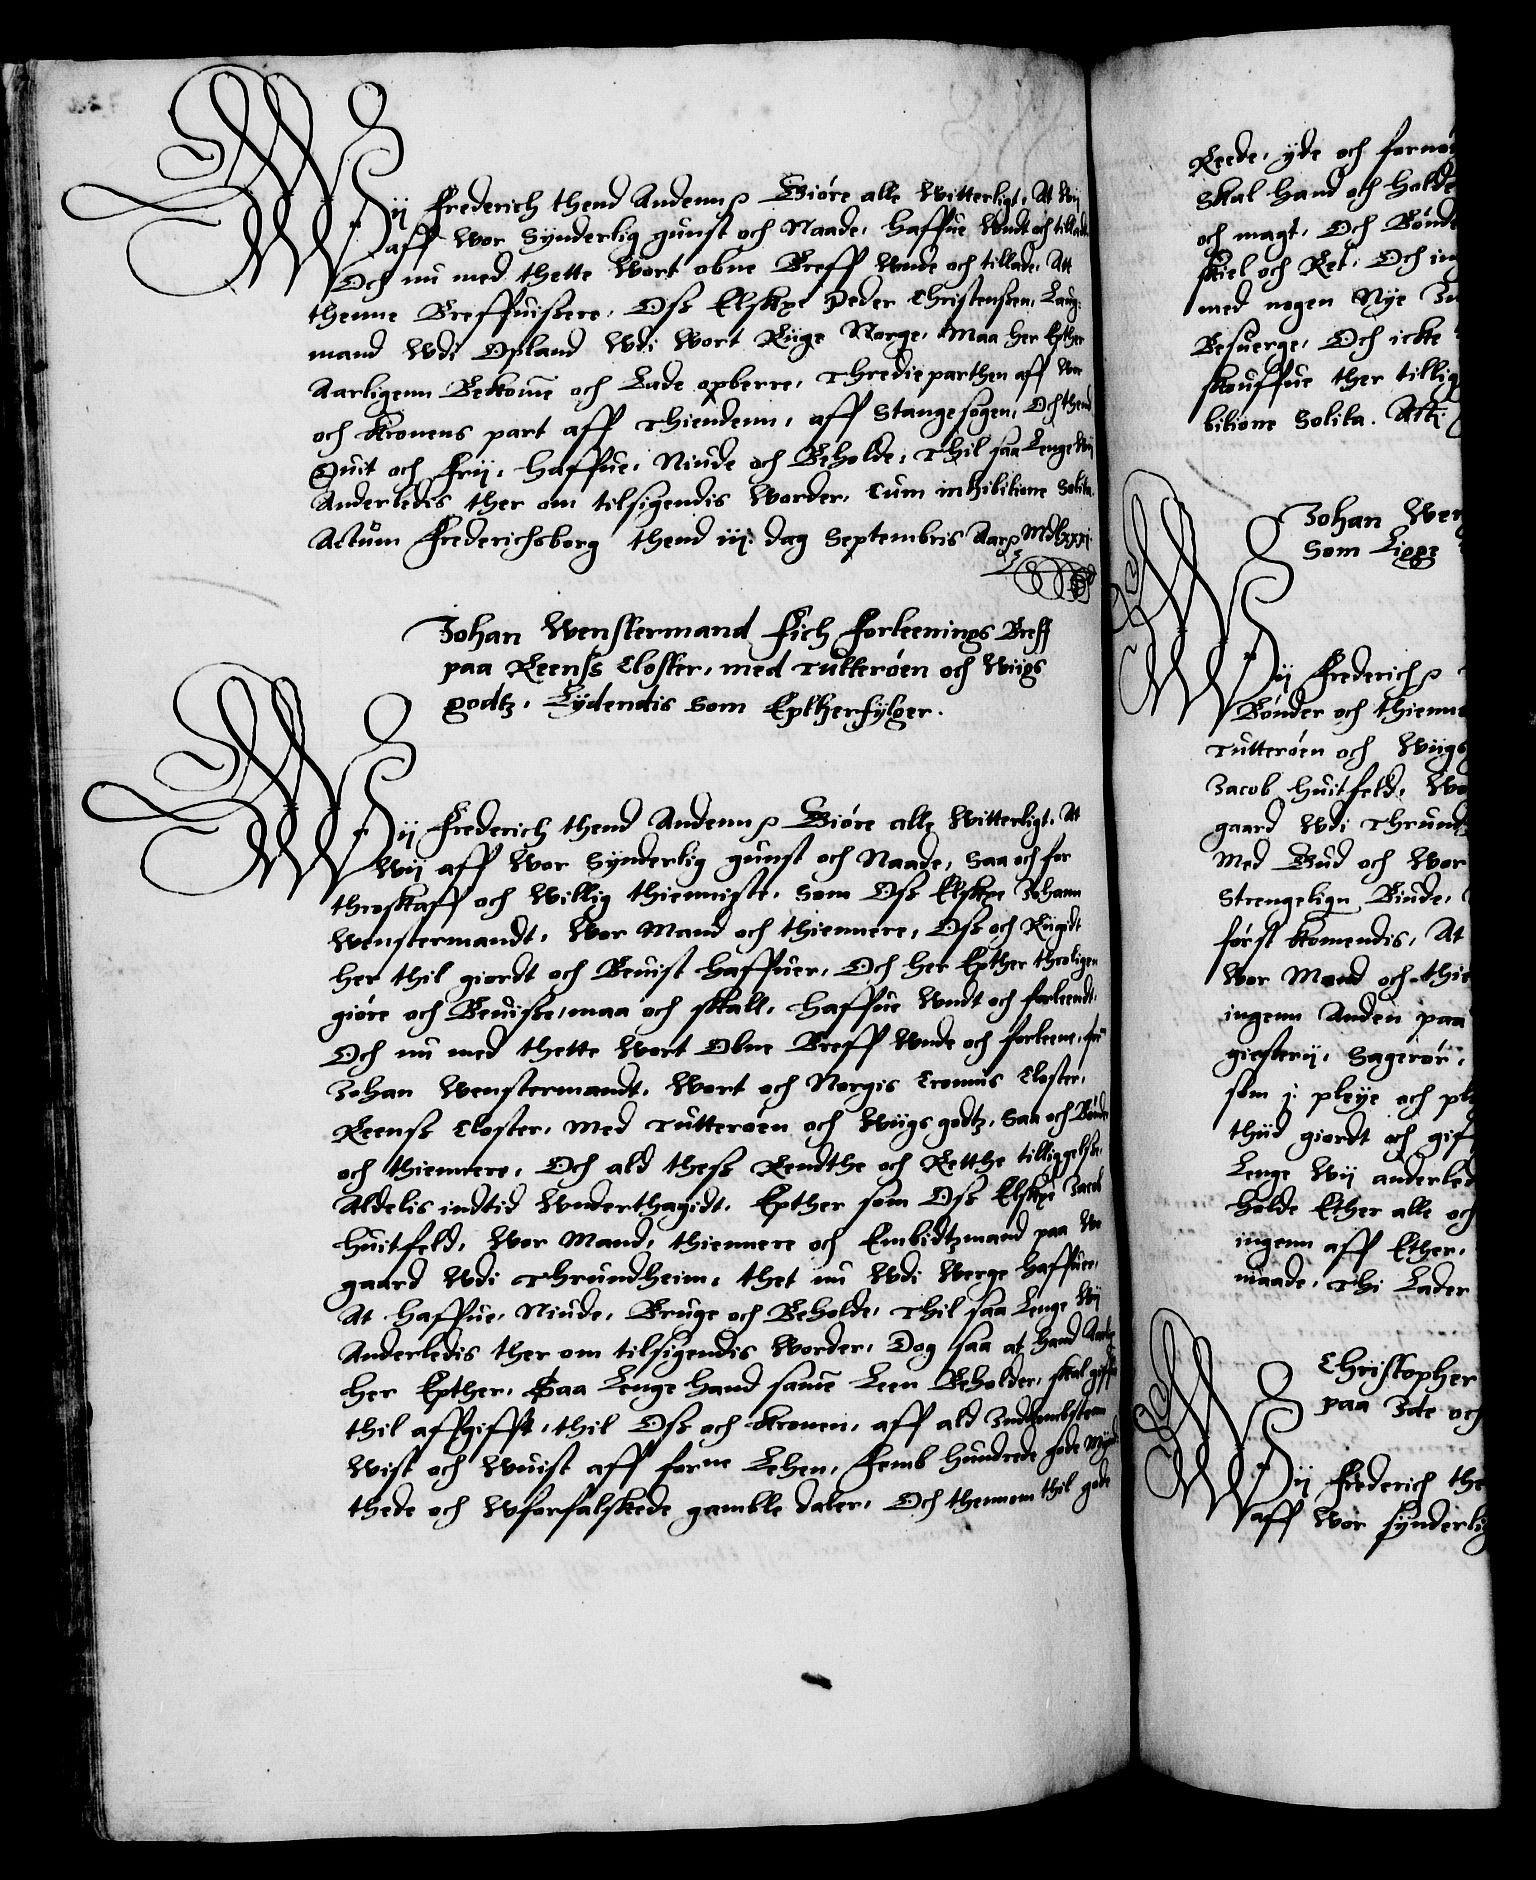 Wij Frederich thend Andenn etc Giöre alle Witterligt, At Wij
aff wor Synderlig gunst och Naade, haffue Wndt och tilladt
Och nu med thette Wort obne Breff Wnde och tillade, Att
thenne Breffuisere, Oss Elskxe Peder Christensen, Laug-
mand Wdi Opland Wdi Wort Riige Norge, Maa her Epther
Aarligenn Bekome och Lade opberre, Thredieparthen aff Wor
och Kronens part aff Thiendenn, aff Stangesogen, Och thend
Quit och Frij, haffue, Niude och Beholde, Thil saa Lenge Wij
Anderledis ther om tilsigendis Worder, Cum inhibitione Solita.
Actum Frederichsborg thend iij. dag Septembris Aar etc Mdlxxxi
Johan Wenstermand Fich Forleenings Breff
paa Reenss Closter, med Tutterøen och Wiigs
godtz, Lydendis som Eptherfylger.
Wij Frederich thend Andenn etc Giöre alle Witterligt, At
Wij aff Wor Synderlig gunst och Naade, saa och for
throskaff och Willig thienniste, som Oss Elskxe Johann
Wenstermandt, Wor Mand och thiennere, Oss och Riigidt
her thil giordt och Beuist haffuer, Och her Epther throligen
giöre och Beuise, maa och skall, haffue Wndt och forleendt,
Och nu med thette Wort Obne Breff Wnde och forleene, for
Johan Wenstermandt, Wort och Norgis Cronnis Closter,
Reenss Closter, Med Tutterøen och Wiigs godtz, Saa och Bönder
och thiennere, Och ald thess Rendthe och Retthe tilliggelsse,
Aldelis indtid Wnderthagidt, Epther som Oss Elskxe Jacob
Huitfeld, Wor Mand, thiennere och Embidtzmand paa Wor
gaard Wdi Thrundheim, thet nu Wdi Werge haffuer,
At haffue, Niude, Bruge och Beholde, Thil saa Lenge Wij
Anderledis ther om tilsigendis Worder, Dog saa at hand Aarlig
her Epther, Saa Lenge hand same Leen Beholder, skal giffue
thil affgifft, thil Oss och Kronen, aff ald Indkombstenn
Wist och Wuist aff forne Lehen, Femb hundrede gode Mynt-
thede och Wforfalskede gamble daler, Och thennom thil gode
Reede, yde och fornö
Skal hand och holde
och magt, Och Bönder
skiel och Ret, Och in
med nogen Nye
Besuerge, Och icke
skouffue ther tillig
bitione Solita. Act.
Johan Wen
som Ligge
Wij Frederich etc
Bönder och thienne
Tutterøen och Wiigs
Jacob Huitfeld, Wo
gaard Wdi Thrund
Med Bud och Wor
Strengelign Biude,
först komendis, At
Wor Mand och thie
ingenn Anden paa
giesterij, Sagerör,
som j pleye och pl
thiid giordt och gif
Lenge Wij anderled
holde Ether alle och
ingenn aff Ether,
maade, Thi Lader
Christopher
paa Jde och
Wij Frederich the
aff Wor synderlig